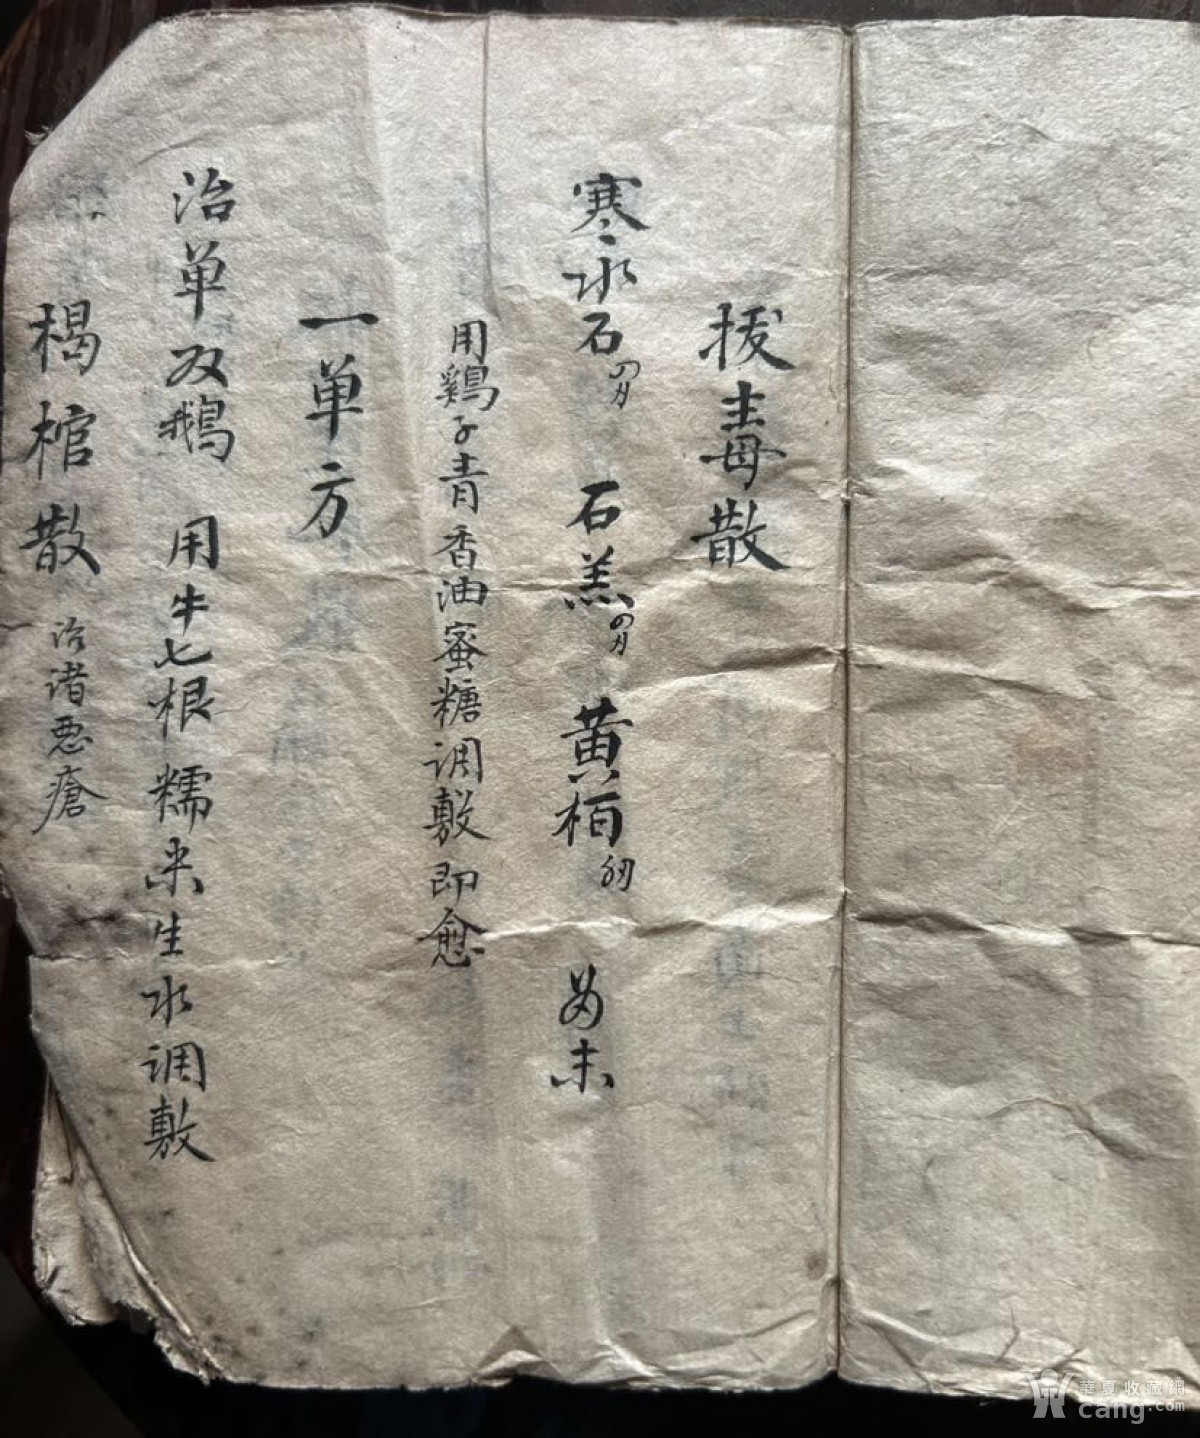 拔毒散
寒水石四刃 石羔四刃 黄栢 为末
用鷄子青香油蜜糖调敷即愈
一单方
治单双鹅 用牛七根糯米生水调敷
楬棺散 治诸恶瘡
華夏收藏網
cang.com